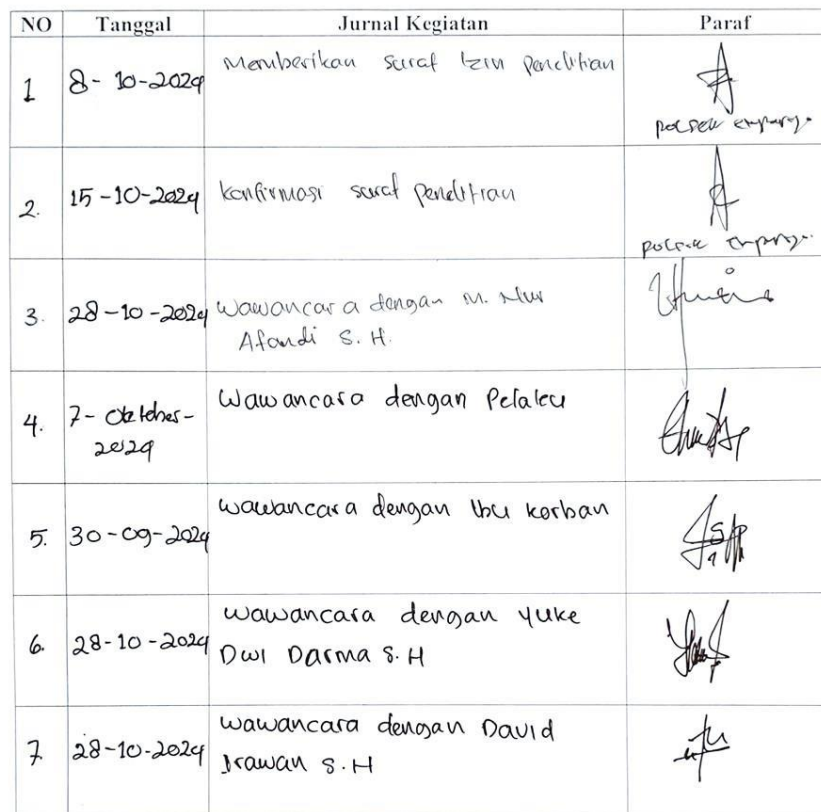 NO Tanggal Jurnal Kegiatan Paraf
1 8-10-2024 Memberikan surat Izin Penelitian
polsek
2. 15-10-2024 Konfirmasi surat Penelitian
polsek
3. 28-10-2024 Wawancara dengan M. Nur
Afandi S.H.
4. 7-Oktober- Wawancara dengan Pelaku
2024
5. 30-09-2024 Wawancara dengan Ibu korban
6. 28-10-2024 Wawancara dengan Yuke
Dwi Darma S.H
7. 28-10-2024 Wawancara dengan David
Irawan S.H